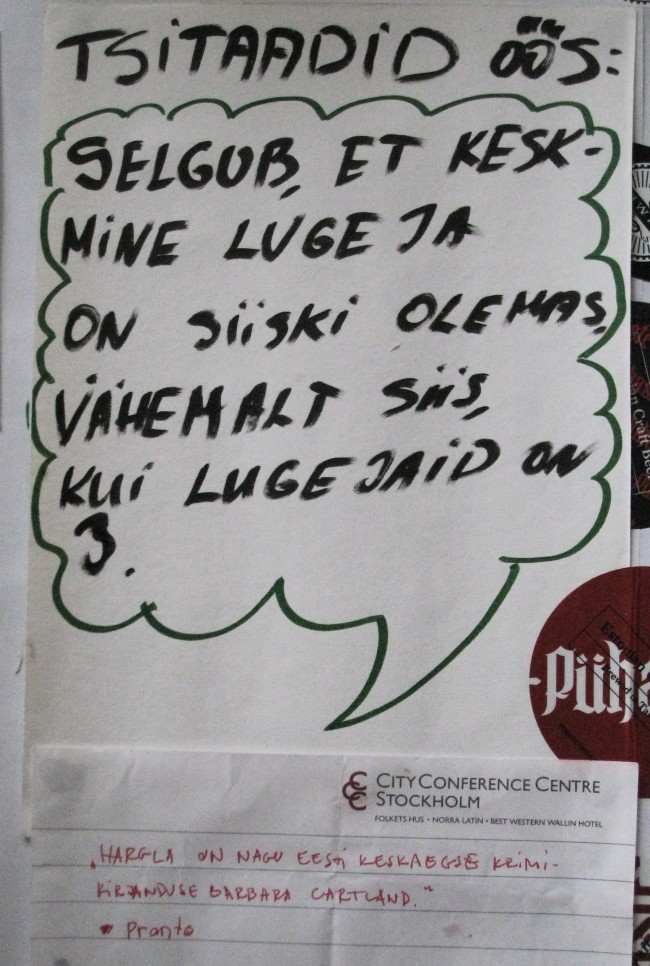 TSITAADID ÖÖS:
SELGUB, ET KESK-
MINE LUGEJA
ON SIISKI OLEMAS,
VÄHEMALT SIIS,
KUI LUGEJAID ON
3.
-Püh
CITY CONFERENCE CENTRE
STOCKHOLM
FOLKETS HUS • NORRA LATIN • BEST WESTERN WALLIN HOTEL
„HARGLA ON NAGU EESTI KESKAEGSE KRIMI-
KIRJANDUSE BARBARA CARTLAND.“
Pronto
n Craft Beer